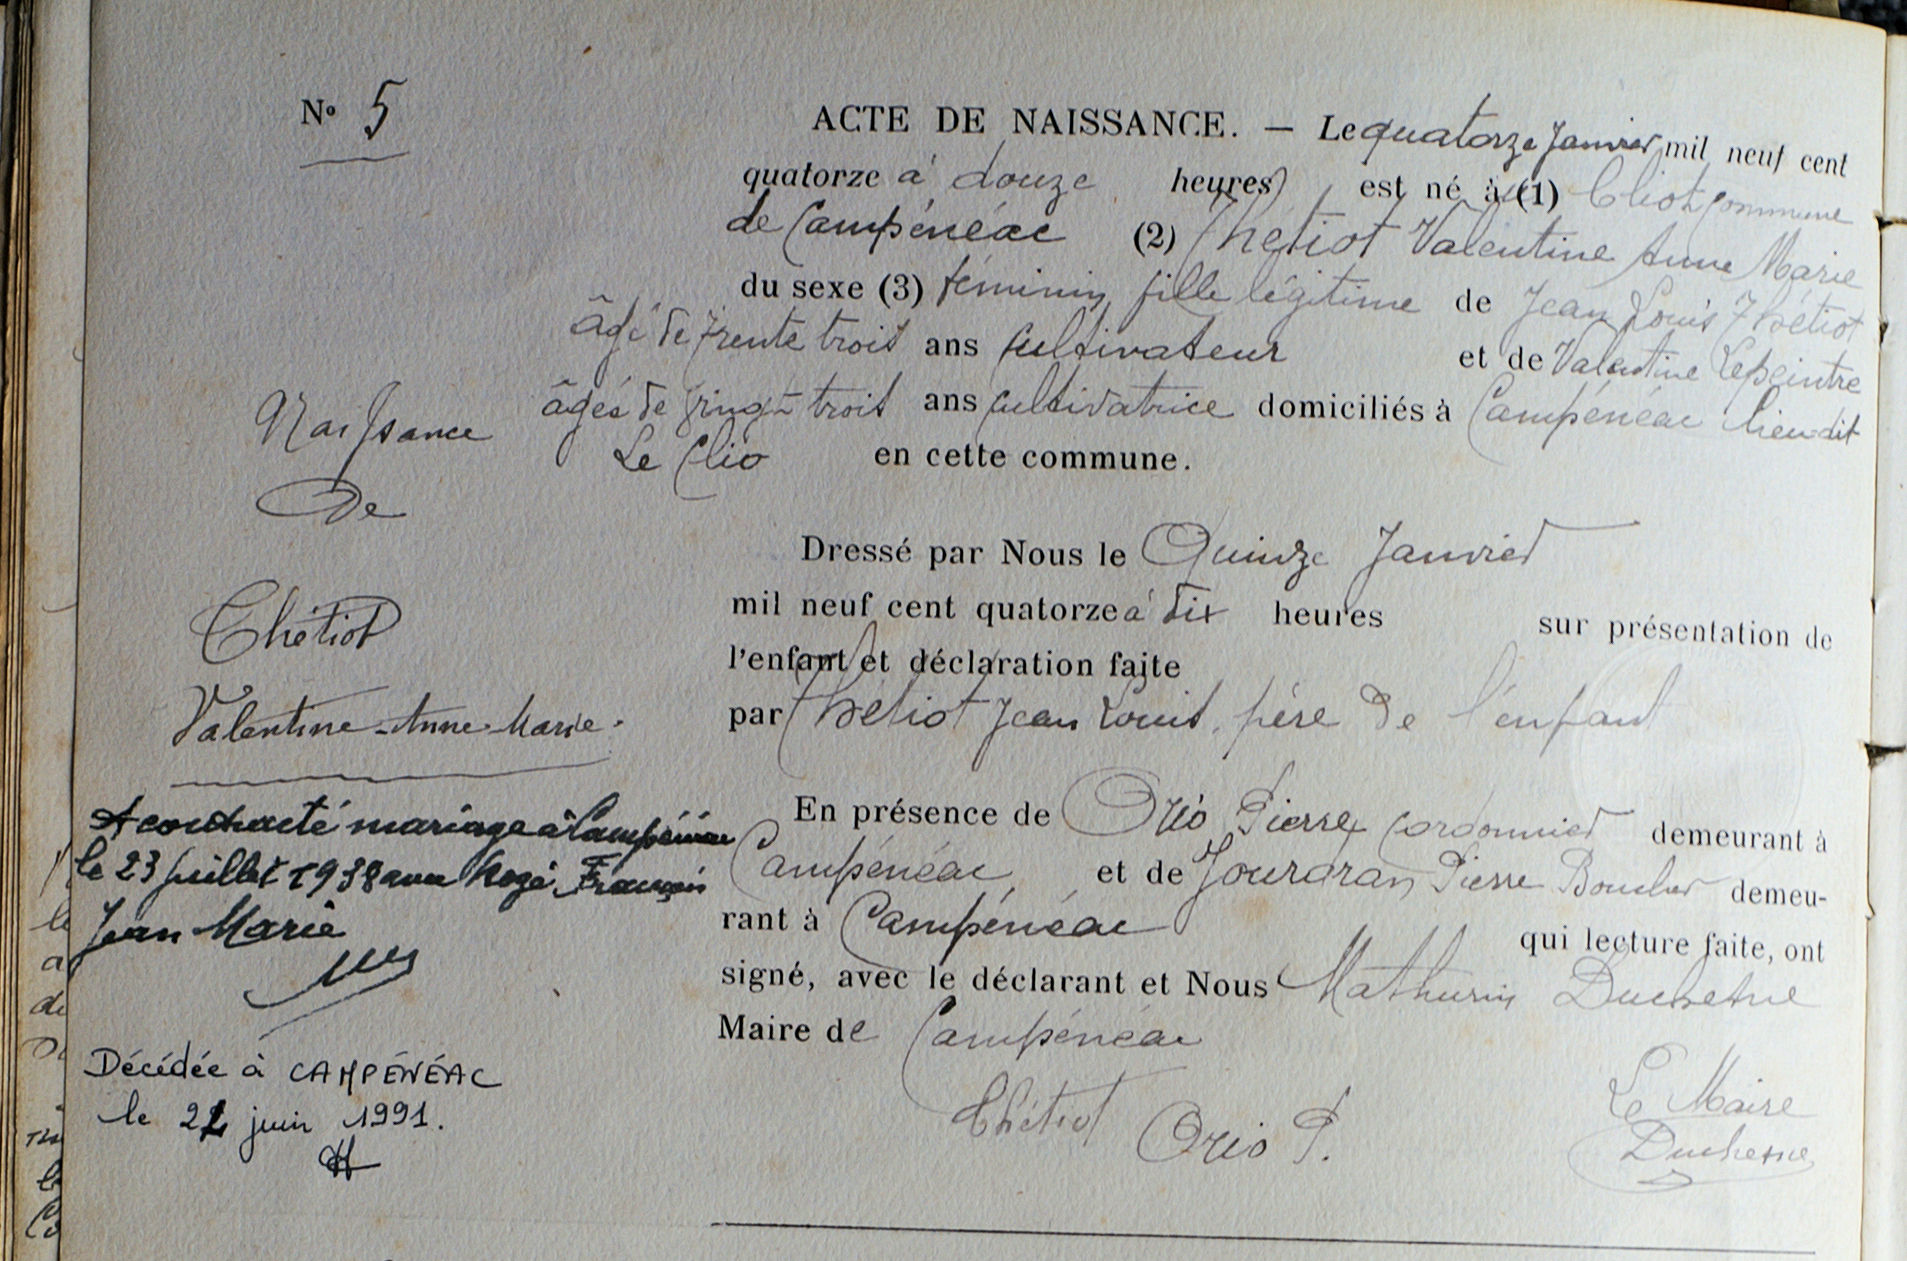 N° 5
ACTE DE NAISSANCE. — Le quatorze Janvier mil neuf cent
quatorze à douze heures, est né à (1) Cliot commune
de Campénéac (2) Thétiot Valentine Anne Marie
du sexe (3) féminin, fille légitime de Jean Louis Thétiot
âgé de trente trois ans cultivateur et de Valentine Lepeintre
âgés de vingt trois ans cultivatrice domiciliés à Campénéac lieu-dit
Le Clio en cette commune.
Naissance
de
Thétiot
Valentine-Anne-Marie.
Dressé par Nous le Quinze Janvier
mil neuf cent quatorze à dix heures sur présentation de
l'enfant et déclaration faite
par Thétiot Jean Louis, père de l'enfant
En présence de Orio Pierre, cordonnier demeurant à
Campénéac, et de Jourdran Pierre Boucher demeu-
rant à Campénéac qui lecture faite, ont
signé, avec le déclarant et Nous Mathurin Duchesne
Maire de Campénéac
Thétiot Orio P.
Le Maire
Duchesne
A contracté mariage à Campénéac
le 23 juillet 1938 avec Rozé François
Jean Marie
Décédée à CAMPÉNÉAC
le 22 juin 1991.